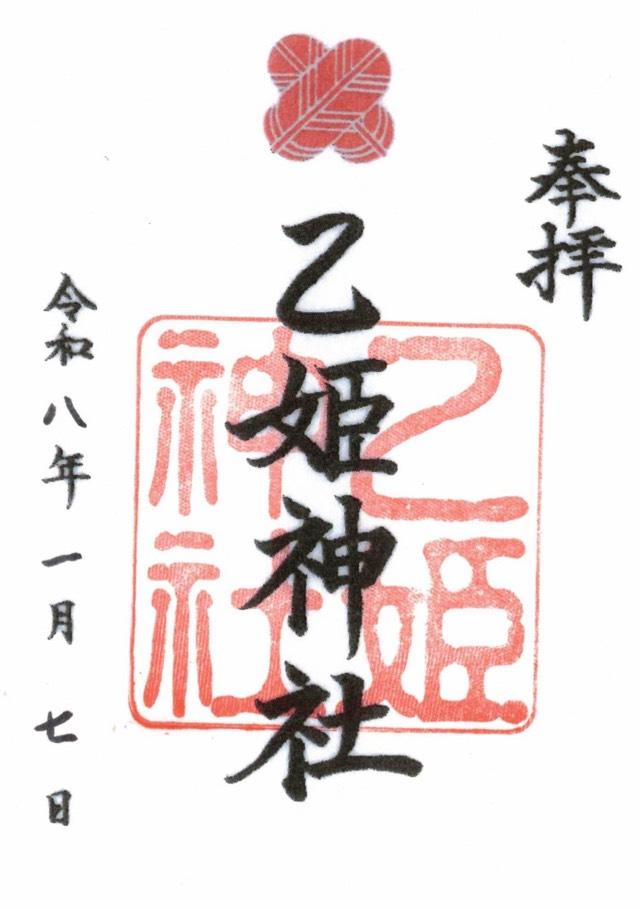 奉拝
乙姫神社
乙姫
神社
令和八年一月七日